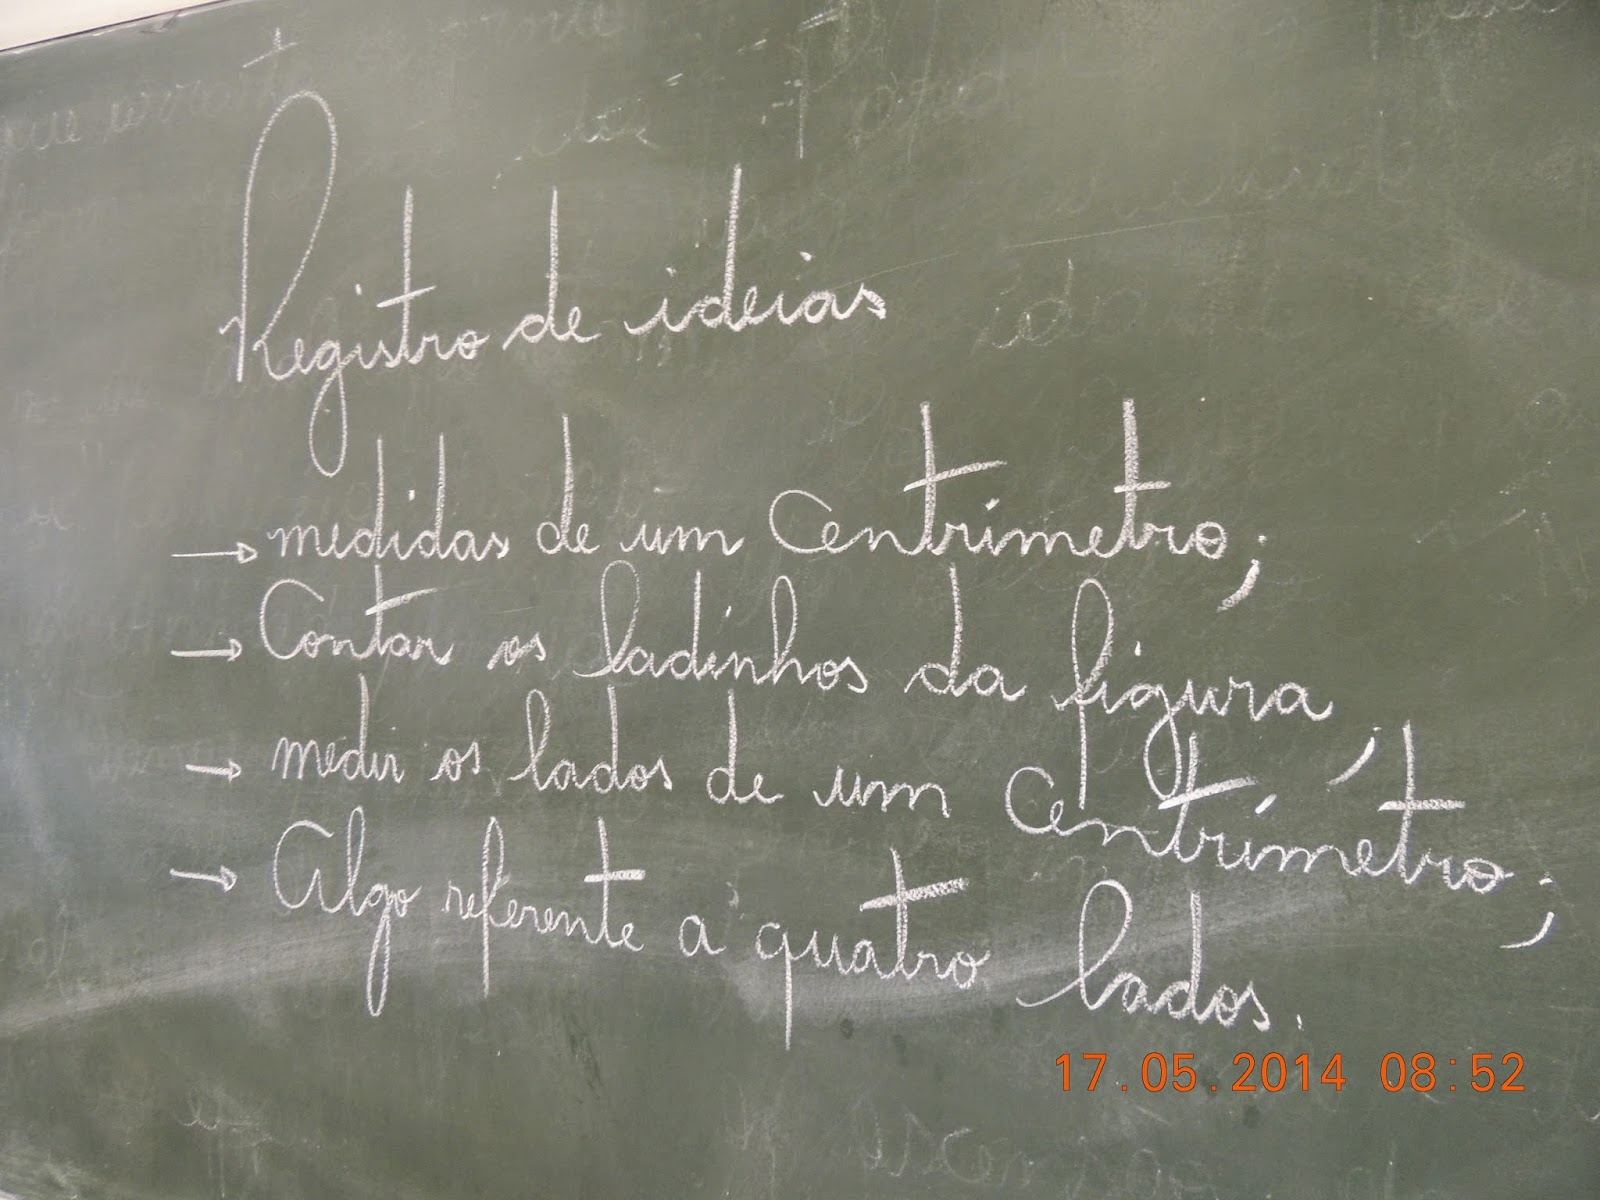 Registro de ideias
→ medidas de um centrimetro;
→ Contar os ladinhos da figura;
→ medir os lados de um centrímetro;
→ Algo referente a quatro lados.
17.05.2014 08:52